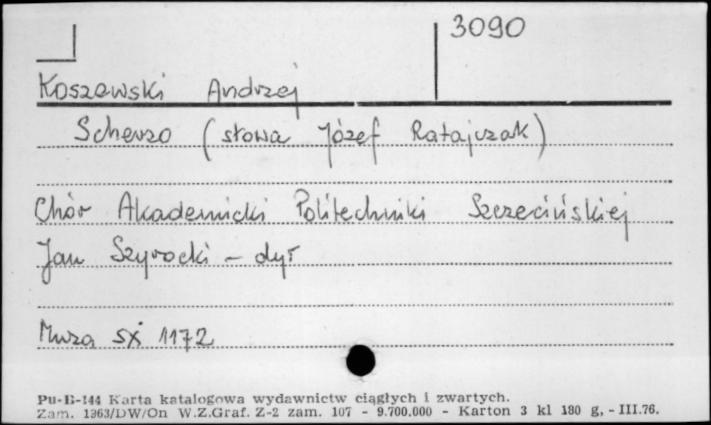 3090
Koszewski Andrzej
Scherzo (słowa Józef Ratajczak)
Chór Akademicki Politechniki Szczecińskiej
Jan Szyrocki - dyr
Muza SX 1172
Pu-B-144 Karta katalogowa wydawnictw ciągłych i zwartych.
Zam. 1363/DW/On W.Z.Graf. Z-2 zam. 107 - 9.700.000 - Karton 3 kl 180 g, - III.76.